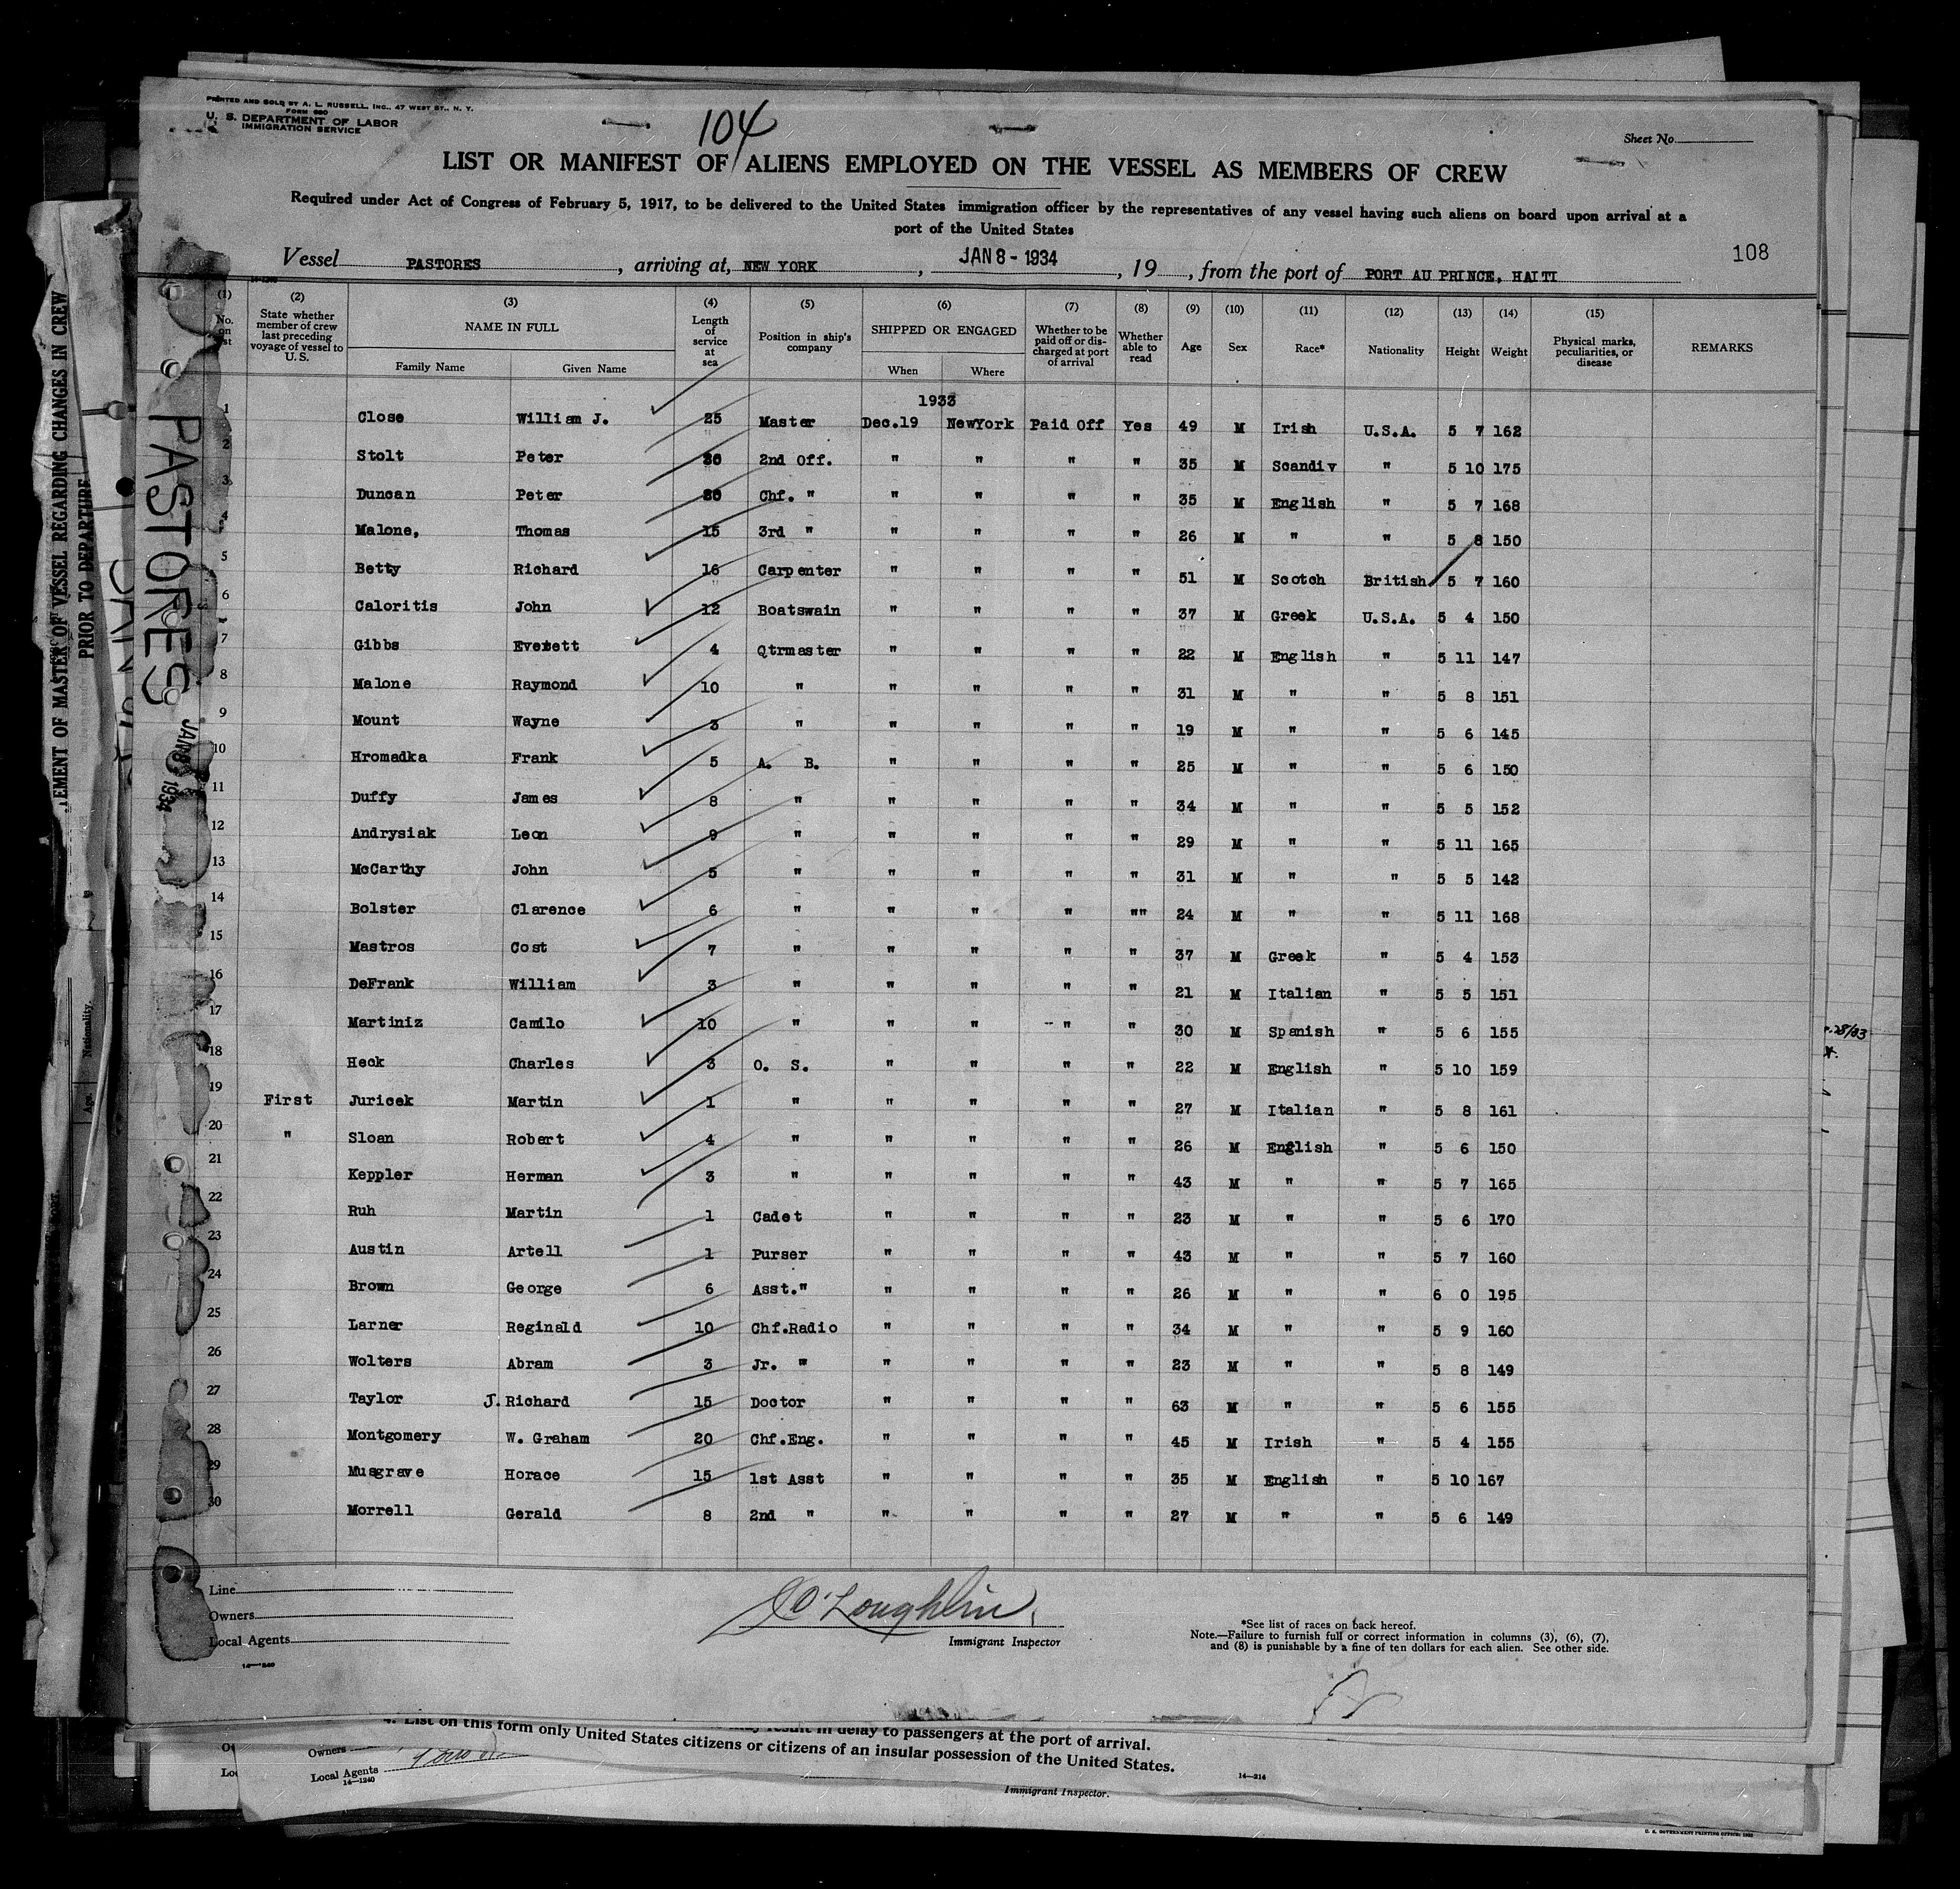 PRINTED AND SOLD BY A. L. RUSSELL, INC., 47 WEST ST., N. Y.
U. S. DEPARTMENT OF LABOR
IMMIGRATION SERVICE
104
Sheet No
LIST OR MANIFEST OF ALIENS EMPLOYED ON THE VESSEL AS MEMBERS OF CREW
Required under Act of Congress of February 5, 1917, to be delivered to the United States immigration officer by the representatives of any vessel having such aliens on board upon arrival at a
port of the United States
108
Vessel PASTORES, arriving at, NEW YORK, JAN 8 - 1934, 19, from the port of PORT AU PRINCE, HAITI
(1) (2) (3) (4) (5) (6) (7) (8) (9) (10) (11) (12) (13) (14) (15)
No. on State whether member of crew last preceding voyage of vessel to U.S. NAME IN FULL Family Name Given Name Length of service at sea Position in ship's company SHIPPED OR ENGAGED When Where Whether to be paid off or discharged at port of arrival Whether able to read Age Sex Race* Nationality Height Weight Physical marks, peculiarities, or disease REMARKS
1933
1 Close William J. 25 Master Dec.19 NewYork Paid Off Yes 49 M Irish U.S.A. 5 7 162
2 Stolt Peter 2nd Off. " " " " 35 M Scandiv " 5 10 175
3 Duncan Peter Chf. " " " " " 35 M English " 5 7 168
4 Malone, Thomas 15 3rd " " " " " 26 M " " 5 8 150
5 Betty Richard 16 Carpenter " " " " 51 M Scotch British 5 7 160
6 Caloritis John 12 Boatswain " " " " 37 M Greek U.S.A. 5 4 150
7 Gibbs Everett 4 Qtrmaster " " " " 22 M English " 5 11 147
8 Malone Raymond 10 " " " " " 31 M " " 5 8 151
9 Mount Wayne 3 " " " " " 19 M " " 5 6 145
10 Hromadka Frank 5 A. B. " " " " 25 M " " 5 6 150
11 Duffy James 8 " " " " " 34 M " " 5 5 152
12 Andrysiak Leon 9 " " " " " 29 M " " 5 11 165
13 McCarthy John 5 " " " " " 31 M " " 5 5 142
14 Bolster Clarence 6 " " " " "" 24 M " " 5 11 168
15 Mastros Cost 7 " " " " " 37 M Greek " 5 4 153
16 DeFrank William 3 " " " " " 21 M Italian " 5 5 151
17 Martiniz Camilo 10 " " " " " 30 M Spanish " 5 6 155
18 Heck Charles 3 O. S. " " " " 22 M English " 5 10 159
19 First Juricek Martin 1 " " " " " 27 M Italian " 5 8 161
20 " Sloan Robert 4 " " " " " 26 M English " 5 6 150
21 Keppler Herman 3 " " " " " 43 M " " 5 7 165
22 Ruh Martin 1 Cadet " " " " 23 M " " 5 6 170
23 Austin Artell 1 Purser " " " " 43 M " " 5 7 160
24 Brown George 6 Asst." " " " " 26 M " " 6 0 195
25 Larner Reginald 10 Chf.Radio " " " " 34 M " " 5 9 160
26 Wolters Abram 3 Jr. " " " " " 23 M " " 5 8 149
27 Taylor J. Richard 15 Doctor " " " " 63 M " " 5 6 155
28 Montgomery W. Graham 20 Chf.Eng. " " " " 45 M Irish " 5 4 155
29 Musgrave Horace 15 1st Asst " " " " 35 M English " 5 10 167
30 Morrell Gerald 8 2nd " " " " " 27 M " " 5 6 149
Line
Owners
Local Agents
O'Loughlin
Immigrant Inspector
*See list of races on back hereof.
Note.—Failure to furnish full or correct information in columns (3), (6), (7),
and (8) is punishable by a fine of ten dollars for each alien. See other side.
may result in delay to passengers at the port of arrival.
4. List on this form only United States citizens or citizens of an insular possession of the United States.
Owners
Local Agents
14—1240
14—214
Immigrant Inspector.
U. S. GOVERNMENT PRINTING OFFICE
PASTORES
JAN 8 1934
EMENT OF MASTER OF VESSEL REGARDING CHANGES IN CREW
PRIOR TO DEPARTURE
Nationality.
Age.